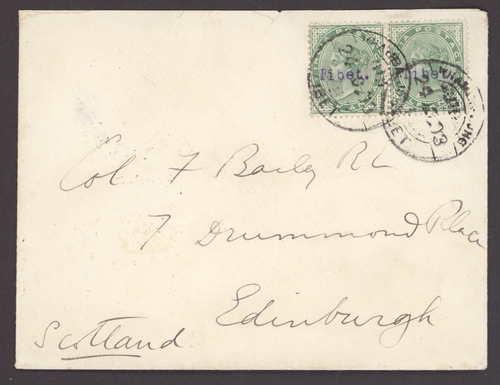 Tibet. Tibet.
TIBET
24 03
Col. F Bailey R E
7 Drummond Place
Edinburgh
Scotland